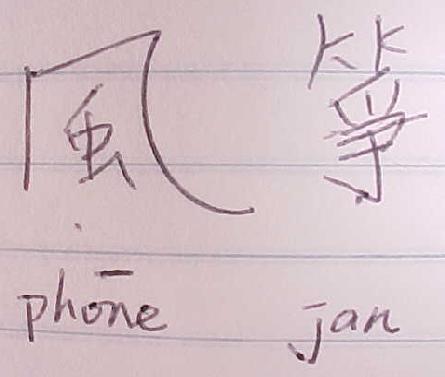 風箏
phōne jan